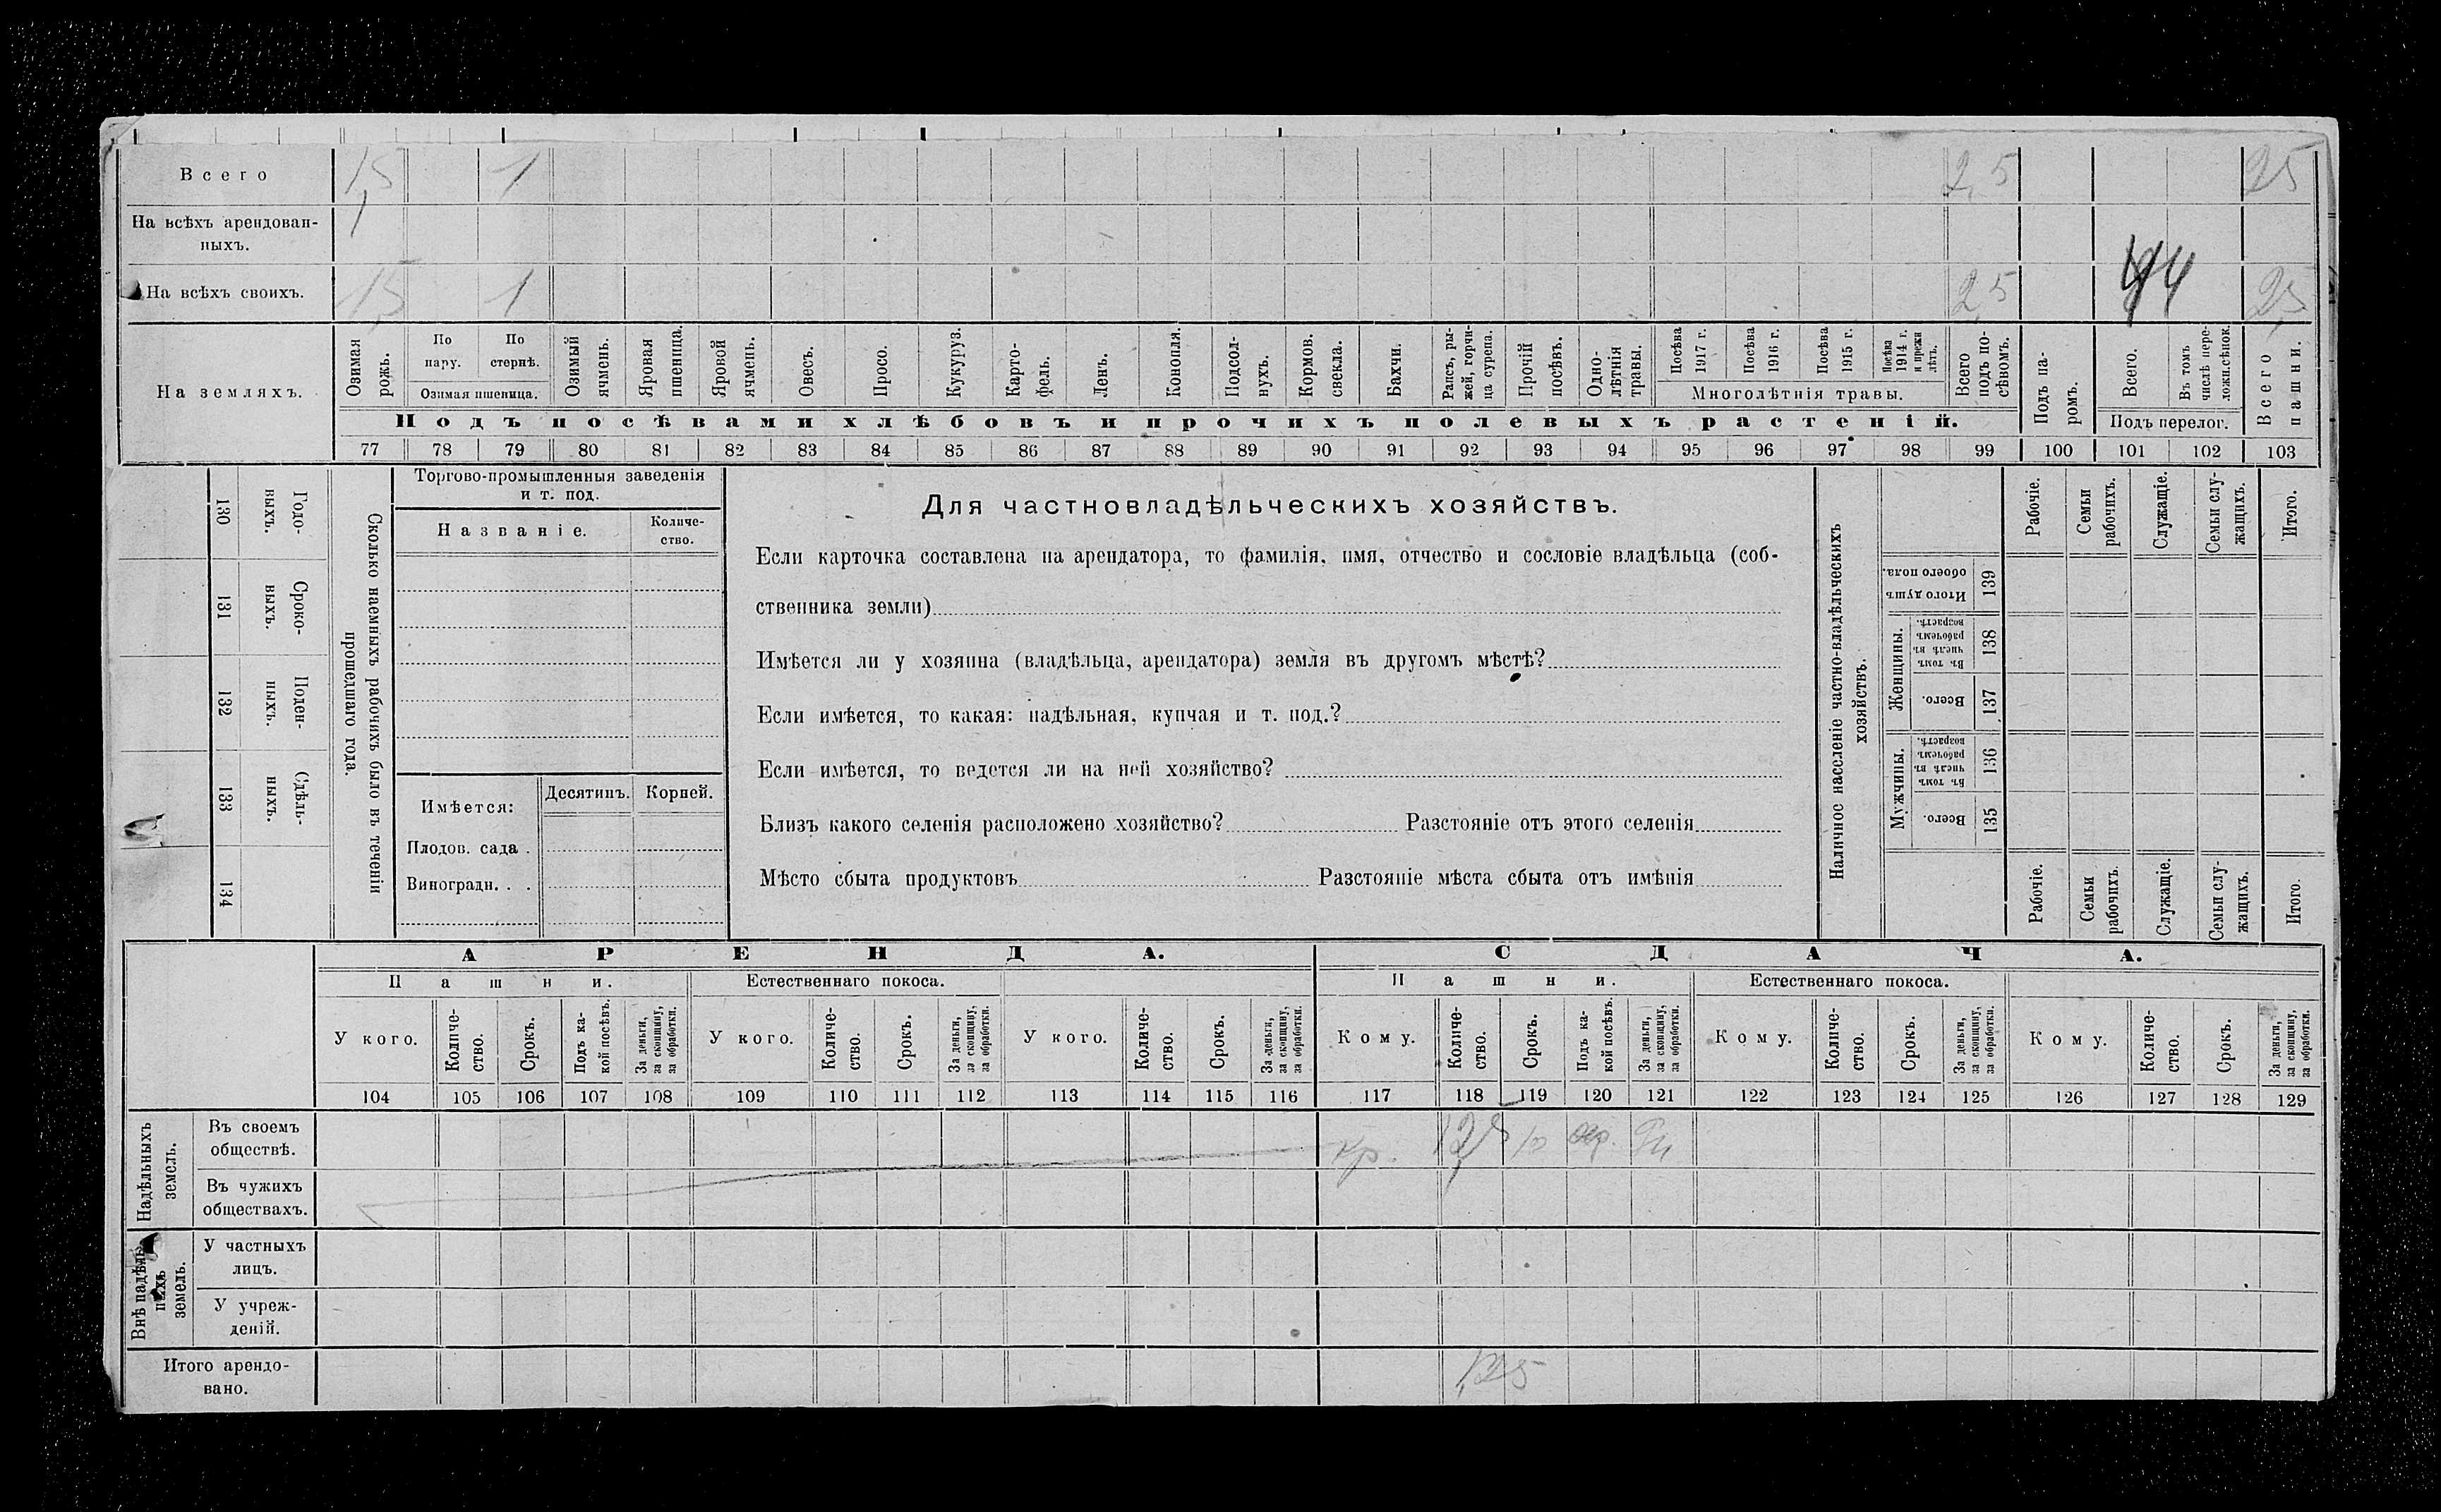 Всего 1,5 1 2,5 2,5
На всѣхъ арендован-
ныхъ.
На всѣхъ своихъ. 1,5 1 2,5 44 2,5
На земляхъ.
Озимая рожь.
По пару.
По стернѣ.
Озимая пшеница.
Озимый ячмень.
Яровая пшеница.
Яровой ячмень.
Овесъ.
Просо.
Кукуруз.
Карто-
фель.
Ленъ.
Конопля.
Подсол-
нухъ.
Кормов. свекла.
Бахчи.
Рапсъ, ры-
жей, горчи-
ца сурепа.
Прочій посѣвъ.
Одно-
лѣтнія травы.
Посѣва 1917 г.
Посѣва 1916 г.
Посѣва 1915 г.
Посѣва 1914 г. и прежн лѣтъ.
Многолѣтнія травы.
Всего подъ по-
сѣвомъ.
Подъ па-
ромъ.
Всего.
Въ томъ числѣ пере-
ложн.сѣнок.
Подъ перелог.
Всего пашни.
Подъ посѣвами хлѣбовъ и прочихъ полевыхъ растеній.
77 78 79 80 81 82 83 84 85 86 87 88 89 90 91 92 93 94 95 96 97 98 99 100 101 102 103
Сколько наемныхъ рабочихъ было въ теченіи
прошедшаго года.
Годо-
выхъ.
130
Сроко-
выхъ.
131
Поден-
ныхъ.
132
Сдѣль-
ныхъ.
133
134
Торгово-промышленныя заведенія
и т. под.
Названіе.
Количе-
ство.
Имѣется:
Десятинъ. Корней.
Плодов. сада .
Виноградн. . .
Для частновладѣльческихъ хозяйствъ.
Если карточка составлена на арендатора, то фамилія, имя, отчество и сословіе владѣльца (соб-
ственника земли)
Имѣется ли у хозяина (владѣльца, арендатора) земля въ другомъ мѣстѣ?
Если имѣется, то какая: надѣльная, купчая и т. под.?
Если имѣется, то ведется ли на ней хозяйство?
Близъ какого селенія расположено хозяйство? Разстояніе отъ этого селенія
Мѣсто сбыта продуктовъ Разстояніе мѣста сбыта отъ имѣнія
Наличное населеніе частно-владѣльческихъ
хозяйствъ.
Рабочіе.
Семьи рабочихъ.
Служащіе.
Семьи слу-
жащихъ.
Итого.
Итого душъ обоего пола.
139
Женщины.
Въ томъ числѣ въ рабочемъ возрастѣ.
138
Всего.
137
Мужчины.
Въ томъ числѣ въ рабочемъ возрастѣ.
136
Всего.
135
Рабочіе.
Семьи рабочихъ.
Служащіе.
Семьи слу-
жащихъ.
Итого.
АРЕНДА. СДАЧА.
Пашни. Естественнаго покоса. Пашни. Естественнаго покоса.
У кого.
Количе-
ство.
Срокъ.
Подъ ка-
кой посѣвъ.
За деньги,
за скопщину,
за обработки.
У кого.
Количе-
ство.
Срокъ.
За деньги,
за скопщину,
за обработки.
У кого.
Количе-
ство.
Срокъ.
За деньги,
за скопщину,
за обработки.
Кому.
Количе-
ство.
Срокъ.
Подъ ка-
кой посѣвъ.
За деньги,
за скопщину,
за обработки.
Кому.
Количе-
ство.
Срокъ.
За деньги,
за скопщину,
за обработки.
Кому.
Количе-
ство.
Срокъ.
За деньги,
за скопщину,
за обработки.
104 105 106 107 108 109 110 111 112 113 114 115 116 117 118 119 120 121 122 123 124 125 126 127 128 129
Надѣльныхъ
земель.
Въ своемъ
обществѣ.
кр.
Въ чужихъ
обществахъ.
Внѣ надѣль-
ныхъ
земель.
У частныхъ
лицъ.
У учреж-
деній.
Итого арендо-
вано.
1,25